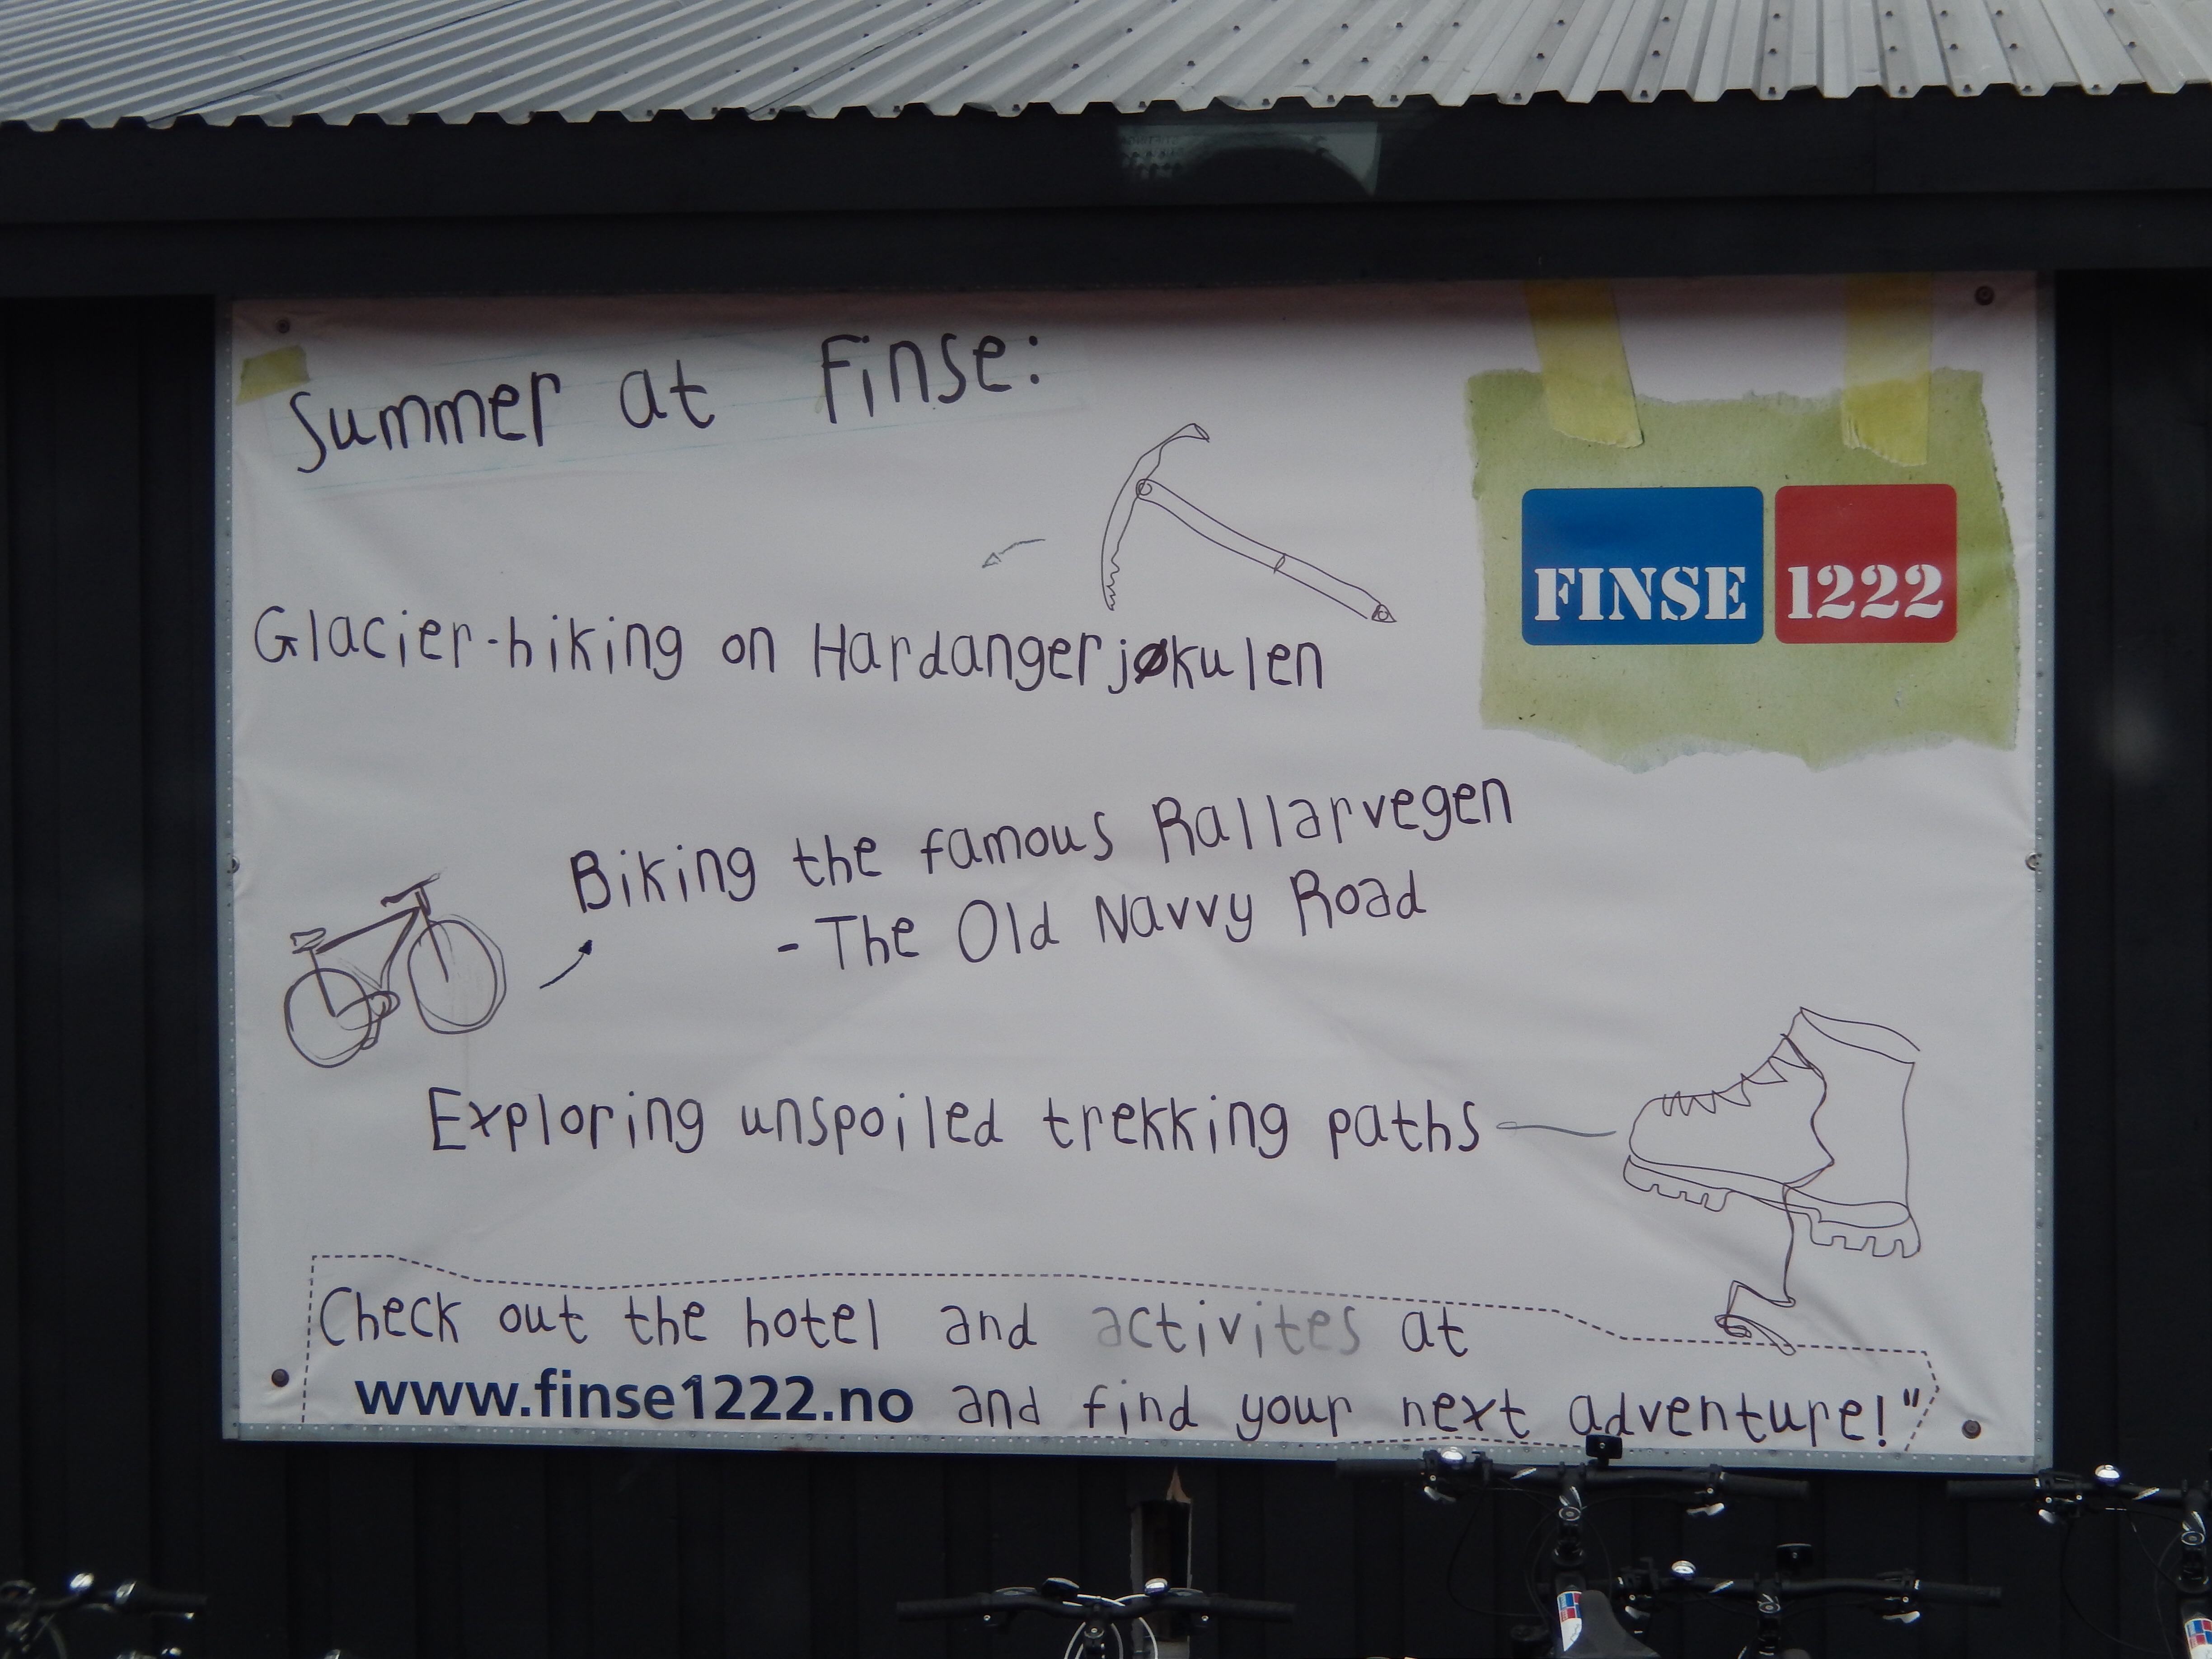 Summer at Finse:
FINSE 1222
Glacier-hiking on Hardangerjøkulen
Biking the famous Rallarvegen
- The Old Navvy Road
Exploring unspoiled trekking paths
Check out the hotel and activites at
www.finse1222.no and find your next adventure!"